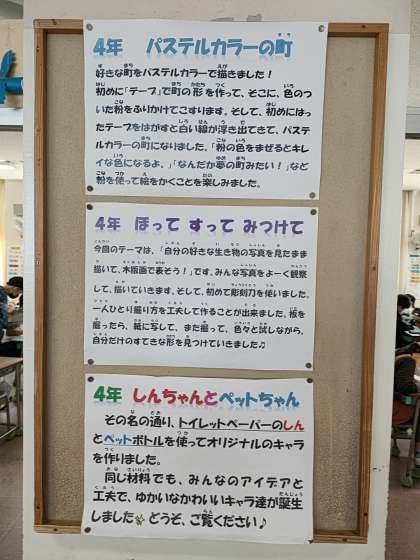 4年 パステルカラーの町
好きな町をパステルカラーで描きました！
初めに「テープ」で町の形を作って、そこに、色のつ
いた粉をふりかけてこすります。そして、初めにはっ
たテープをはがすと白い線が浮き出てきて、パステ
ルカラーの町になりました。「粉の色をまぜるとキレ
イな色になるよ。」「なんだか夢の町みたい！」など
粉を使って絵をかくことを楽しみました。
4年 ほって すって みつけて
今回のテーマは、「自分の好きな生き物の写真を見たまま
描いて、木版画で表そう！」です。みんな写真をよーく観察
して、描いていきます。そして、初めて彫刻刀を使いました。
一人ひとり掘り方を工夫して作ることが出来ました。板を
掘ったら、紙に写して、また掘って、色々と試しながら、
自分だけのすてきな形を見つけていきました♪
4年 しんちゃんとペットちゃん
その名の通り、トイレットペーパーのしん
とペットボトルを使ってオリジナルのキャラ
を作りました。
同じ材料でも、みんなのアイデアと
工夫で、ゆかいなかわいいキャラ達が誕生
しました🌟どうぞ、ご覧ください♪